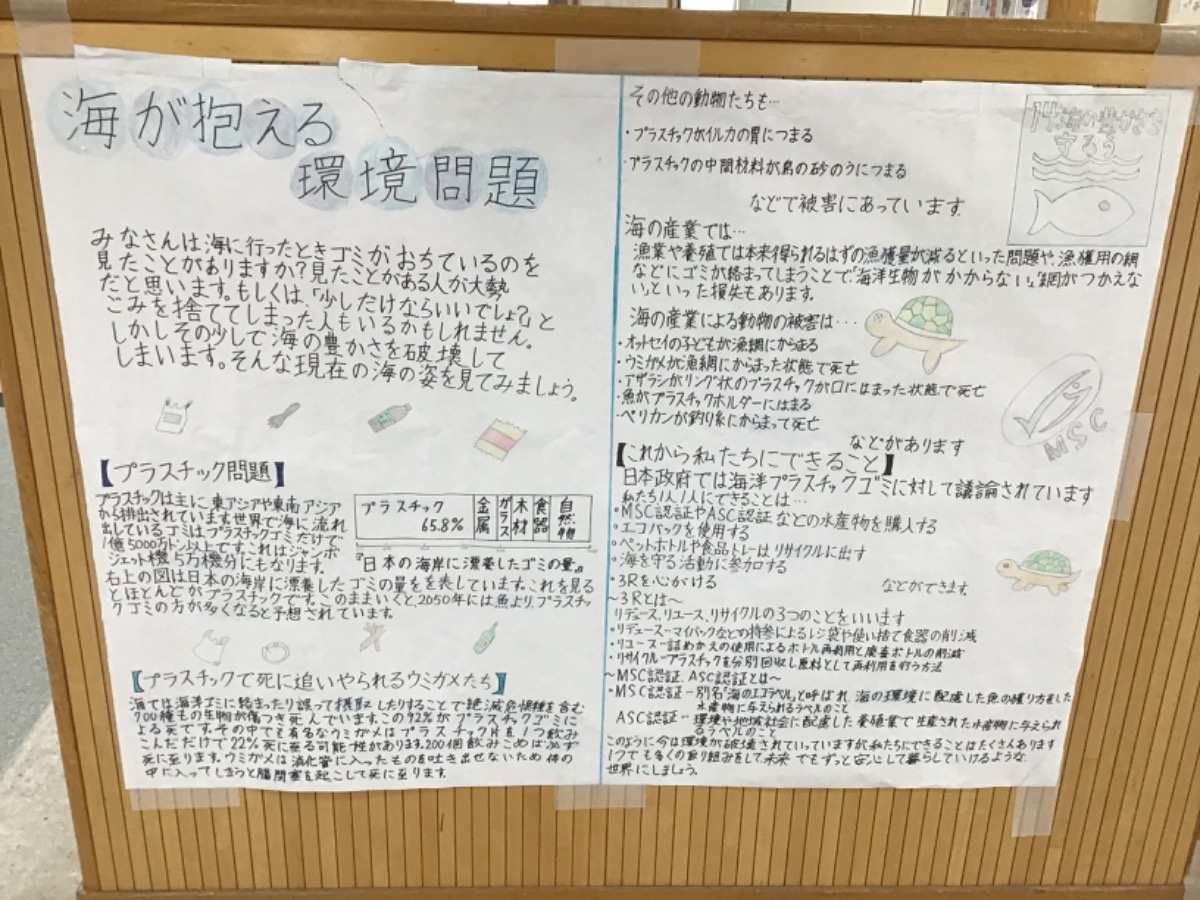 海が抱える
環境問題
みなさんは海に行ったときゴミがおちているのを
見たことがありますか?見たことがある人が大勢
だと思います。もしくは、「少しだけならいいでしょ?」と
ごみを捨ててしまった人もいるかもしれません。
しかしその少しで海の豊かさを破壊して
しまいます。そんな現在の海の姿を見てみましょう。
【プラスチック問題】
プラスチックは主に東アジアや東南アジア
から排出されています。世界で海に流れ
出しているゴミはプラスチックゴミだけで
1億5000万トン以上です。これはジャンボ
ジェット機5万機分にもなります。
右上の図は日本の海岸に漂着したゴミの量をを表しています。これを見る
とほとんどがプラスチックです。このままいくと、2050年には魚より、プラスチッ
クゴミの方が多くなると予想されています。
プラスチック
65.8%
金属
ガラス
木材
食器
自然物
『日本の海岸に漂着したゴミの量』
【プラスチックで死に追いやられるウミガメたち】
海では海洋ゴミに絡まったり誤って摂取したりすることで絶滅危惧種を含む
700種もの生物が傷つき死んでいます。この92%がプラスチックゴミに
よる死です。その中でも有名なウミガメはプラスチック片を1つ飲み
こんだだけで22%死に至る可能性があります。200個飲みこめば必ず
死に至ります。ウミガメは消化管に入ったものを吐き出せないため体の
中に入ってしまうと腸閉塞を起こして死に至ります。
その他の動物たちも…
・プラスチックがイルカの胃につまる
・プラスチックの中間材料が鳥の砂のうにつまる
などで被害にあっています。
14海の豊かさを
守ろう
海の産業では…
漁業や養殖では本来得られるはずの漁獲量が減るといった問題や、漁獲用の網
などにゴミが絡まってしまうことで、海洋生物がかからない、網がつかえな
い、といった損失もあります。
海の産業による動物の被害は…
・オットセイの子どもが漁網にからまる
・ウミガメが漁網にからまった状態で死亡
・アザラシがリング状のプラスチックが口にはまった状態で死亡
・魚がプラスチックホルダーにはまる
・ペリカンが釣り糸にからまって死亡
などがあります
MSC
【これから私たちにできること】
日本政府では海洋プラスチックゴミに対して議論されています
私たち1人1人にできることは…
・MSC認証やASC認証などの水産物を購入する
・エコバックを使用する
・ペットボトルや食品トレーはリサイクルに出す
・海を守る活動に参加する
・3Rを心がける
などができます。
〜3Rとは〜
リデュース、リユース、リサイクルの3つのことをいいます
・リデュース…マイバックなどの持参によるレジ袋や使い捨て食器の削減
・リユース…詰めかえの使用によるボトル再利用と廃棄ボトルの削減
・リサイクル…プラスチックを分別回収し原料として再利用を行う方法
〜MSC認証、ASC認証とは〜
・MSC認証…別名「海のエコラベル」と呼ばれ海の環境に配慮した魚の獲り方をした
水産物に与えられるラベルのこと
ASC認証…環境や地域社会に配慮した養殖業で生産された水産物に与えられ
るラベルのこと
このように今は環境が破壊されていっていますが、私たちにできることはたくさんあります
1つでも多くの取り組みをして、未来でもずっと安心して暮らしていけるような
世界にしましょう。